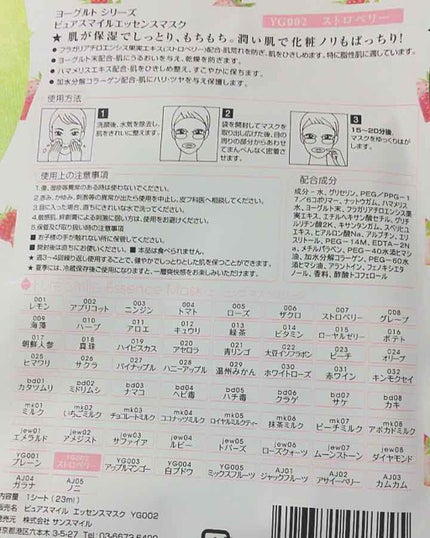 ヨーグルト シリーズ
ピュアスマイルエッセンスマスク
YG002 ストロベリー
★ 肌が保湿でしっとり、もちもち。潤い肌で化粧ノリもばっちり!
●フラガリアチロエンシス果実エキス(ストロベリー)配合・肌荒れを防ぎ、肌をひきしめます。特に脂性肌に適しています。
●ヨーグルト末配合・肌にうるおいを与え、乾燥を防ぎます。
●ハマメリスエキス配合・肌をひきしめ整え、すこやかに保ちます。
●加水分解コラーゲン配合・肌にハリ・ツヤを与え保護します。
使用方法
1
洗顔後、水気を除去し、
肌をきれいに整えます。
2
袋を開封してマスクを
取り出し広げた後、目の
周りの部分からあわせ
てまんべんなく密着さ
せます。
3
15~20分後、
マスクをゆっくりはが
します。
使用上の注意事項
1.傷、湿疹等異常のある時は使わないでください。
2.赤み、かゆみ、刺激等の異常が出たら使用を中止し、皮フ科医へ相談してください。
3.目に入った場合、直ちにきれいな水で洗ってください。
4.敏感肌、絆創膏による刺激に弱い方は、使用をお避けください。
5.保管及び取り扱い時の注意事項
■お子様の手が触れない所に保管してください。
■開封後は直ちにお使いください。■本品は食べられません。
★週3~4回繰り返し使用することで、健やかでしっとりとした肌を保つことができます。
★夏季には、冷蔵保存後ご使用になりますと、一層爽快感をお楽しみいただけます。
配合成分
成分 - 水、グリセリン、PEG/PPG-1
7/6コポリマー、ナットウガム、ハマメリス
水、ヨーグルト末、フラガリアチロエンシス果
実エキス、エチルヘキサン酸セチル、グリチ
ルリチン酸2K、キサンタンガム、スベリヒユ
エキス、ヒアルロン酸Na、アルブチン、エリ
スリトール、PEG-14M、EDTA-2N
a、メチルパラベン、PEG-40水添ヒマシ
油、加水分解コラーゲン、PEG-60水
添ヒマシ油、アラントイン、フェノキシエタ
ノール、香料、酢酸トコフェロール
001 レモン
002 アプリコット
003 ニンジン
004 トマト
005 ローズ
006 ザクロ
007 ストロベリー
008 グレープ
009 海藻
010 ハーブ
011 アロエ
012 キュウリ
013 緑茶
014 ビタミン
015 ローヤルゼリー
016 ポテト
017 朝鮮人参
018 真珠
019 ハイビスカス
020 アセロラ
021 青リンゴ
022 大豆イソフラボン
023 ピーチ
024 オリーブ
025 ヒマワリ
026 サクラ
027 パイナップル
028 ハニーアップル
029 温州みかん
030 ホワイトローズ
031 赤ワイン
032 キンモクセイ
bd01 カタツムリ
bd02 ミドリムシ
bd03 ナマコ
bd04 ヘビ毒
bd05 ハチ毒
bd06 クラゲ
bd07 サケ
bd08 カキ
mk01 ミルク
mk02 いちごミルク
mk03 チョコレートミルク
mk04 ココナッツミルク
mk05 ロイヤルミルクティー
mk06 抹茶ミルク
mk07 ピーチミルク
mk08 アボカドミルク
jew01 エメラルド
jew02 アメジスト
jew03 サファイア
jew04 ルビー
jew05 トパーズ
jew06 ローズクォーツ
jew07 ムーンストーン
jew08 ダイヤモンド
YG001 プレーン
YG002 ストロベリー
YG003 アップルマンゴー
YG004 白ブドウ
YG005 ミックスフルーツ
AJ01 ジャックフルーツ
AJ02 アサイーベリー
AJ03 カムカム
AJ04 ガラナ
AJ05 ノニ
内容量】 1シート(23ml)
売名】 ピュアスマイル エッセンスマスク YG002
発売元】 株式会社 サンスマイル
東京都港区六本木 3-5-27 Tel: 03-6673-6400